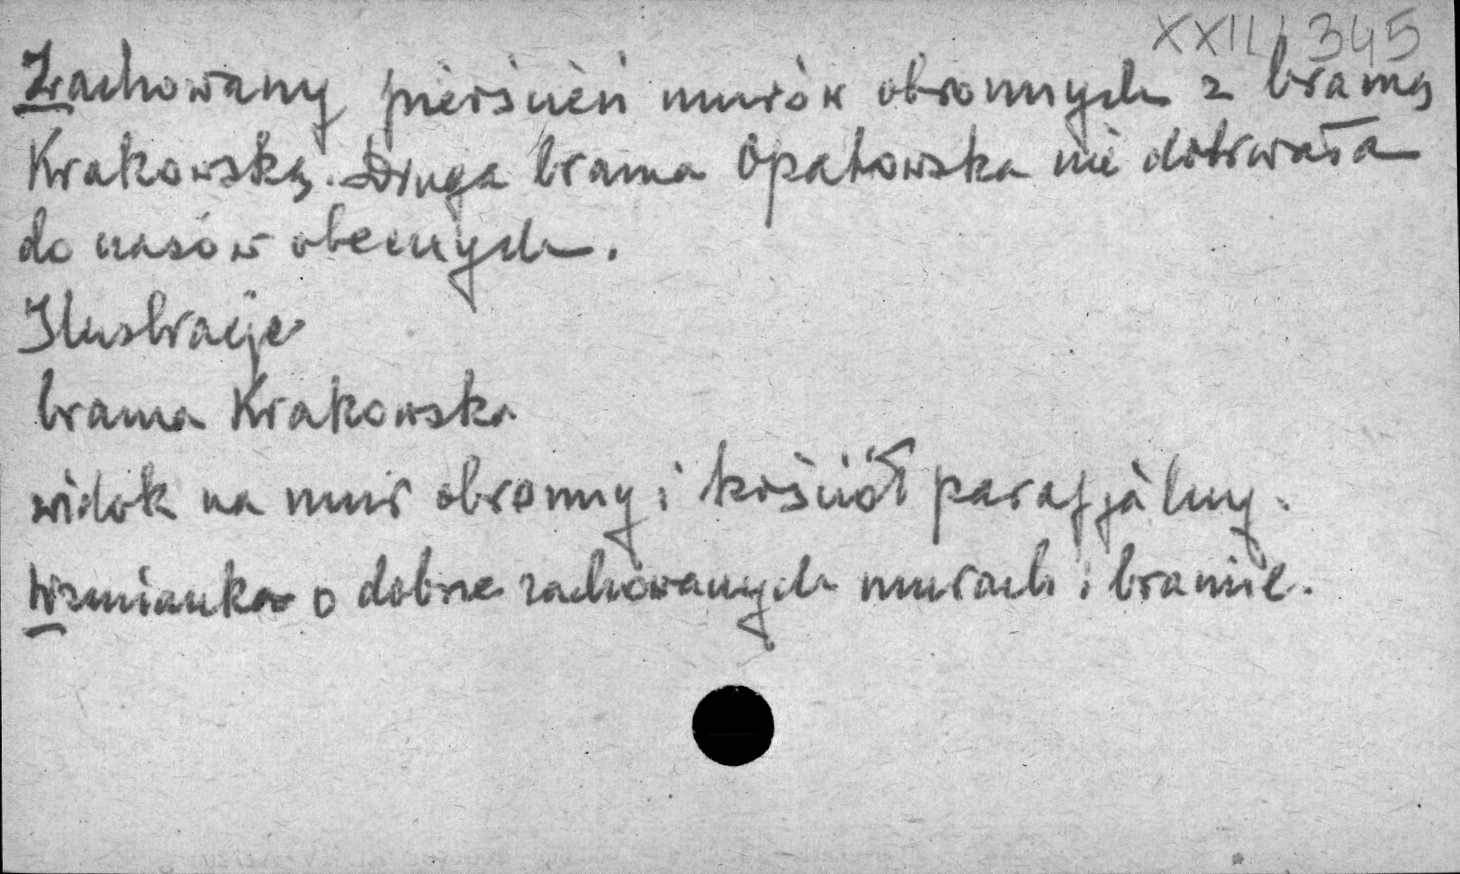 XXII/345
Zachowany pierścień murów obronnych z bramą
Krakowską. Druga brama Opatowska nie dotrwała
do czasów obecnych.
Ilustracje
brama Krakowska
widok na mur obronny i kościół parafjalny.
Wzmianka o dobrze zachowanych murach i bramie.